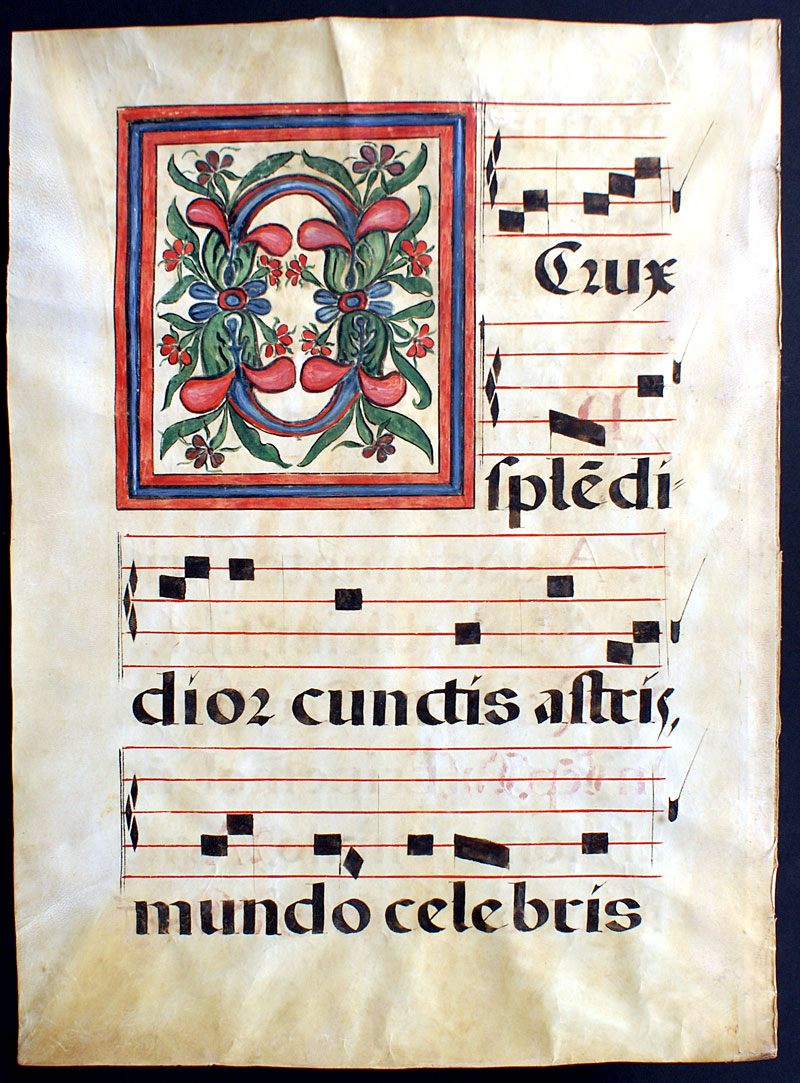 O Crux
splēdi-
dior cunctis astris,
mundo celebris